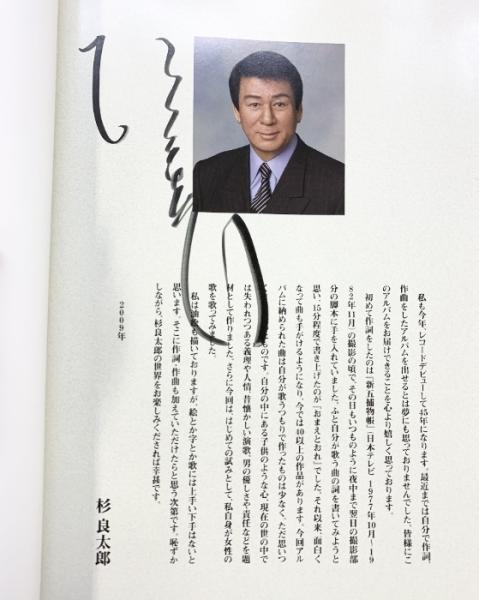 私も今年、レコードデビューして45年になります。最近までは自分で作詞、
作曲をしたアルバムを出せるとは夢にも思っておりませんでした。皆様にこ
のアルバムをお届けできることを心より嬉しく思っております。
初めて作詞をしたのは『新五捕物帳』(日本テレビ 1977年10月～19
82年11月)の撮影の頃で、その日もいつものように夜中まで翌日の撮影部
分の脚本に手を入れていました。ふと自分が歌う曲の詞を書いてみようと
思い、15分程度で書き上げたのが『おまえとおれ』でした。それ以来、面白く
なって曲も手がけるようになり、今では40以上の作品があります。今回アル
バムに納められた曲は自分が歌うつもりで作ったものは少なく、ただ思いつ
ものです。自分の中にある子供のような心、現在の世の中で
は失われつつある義理や人情、昔懐かしい演歌、男の優しさや責任などを題
材として作りました。さらに今回は、はじめての試みとして、私自身が女性の
歌を歌ってみました。
私は油絵も描いておりますが、絵とか字とか歌には上手い下手はないと
思います。そこに作詞、作曲も加えていただけたらと思う次第です。恥ずか
しながら、杉良太郎の世界をお楽しみくだされば幸甚です。
2009年
杉良太郎